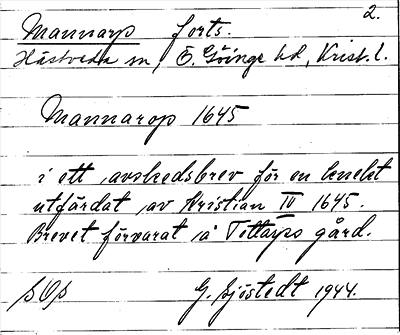 2.
Mannarp forts.
Hästveda sn, Ö. Göinge hd, Krist. l.
Mannarop 1645
i ett avskedsbrev för en knekt
utfärdat av Kristian IV 1645.
Brevet förvarat i Tettarps gård.
G. Sjöstedt 1944.